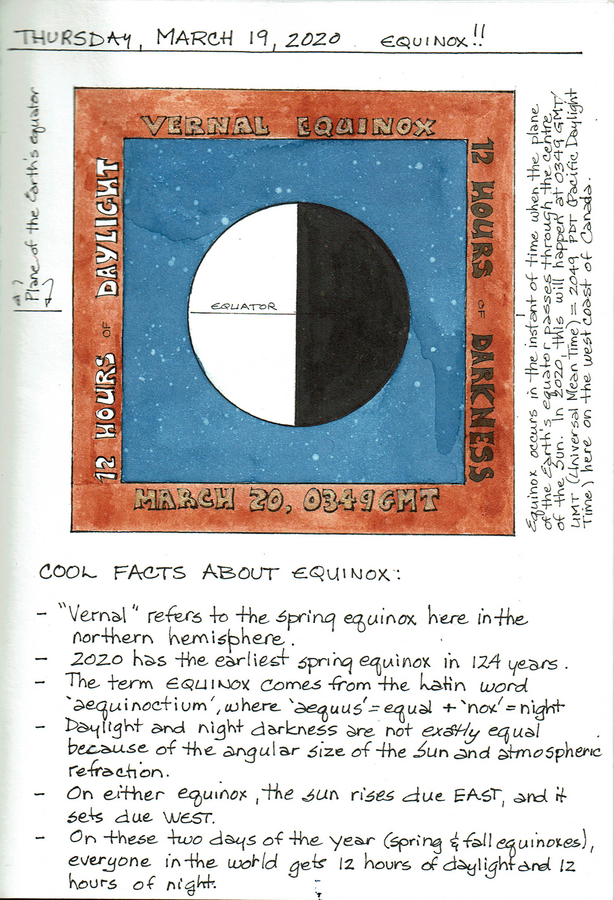 THURSDAY, MARCH 19, 2020 EQUINOX!!
Plane of the Earth's equator
VERNAL EQUINOX
12 HOURS OF DAYLIGHT
12 HOURS OF DARKNESS
EQUATOR
MARCH 20, 0349 GMT
Equinox occurs in the instant of time when the plane
of the Earth's equator passes through the centre
of the Sun. In 2020, this will happen at 0349 GMT/
UMT (Universal Mean Time) = 2049 PDT (Pacific Daylight
Time) here on the west coast of Canada.
COOL FACTS ABOUT EQUINOX:
- "Vernal" refers to the spring equinox here in the
northern hemisphere.
- 2020 has the earliest spring equinox in 124 years.
- The term EQUINOX comes from the Latin word
'aequinoctium', where 'aequus' = equal + 'nox' = night
- Daylight and night darkness are not exactly equal
because of the angular size of the Sun and atmospheric
refraction.
- On either equinox, the sun rises due EAST, and it
sets due WEST.
- On these two days of the year (spring & fall equinoxes),
everyone in the world gets 12 hours of daylight and 12
hours of night.